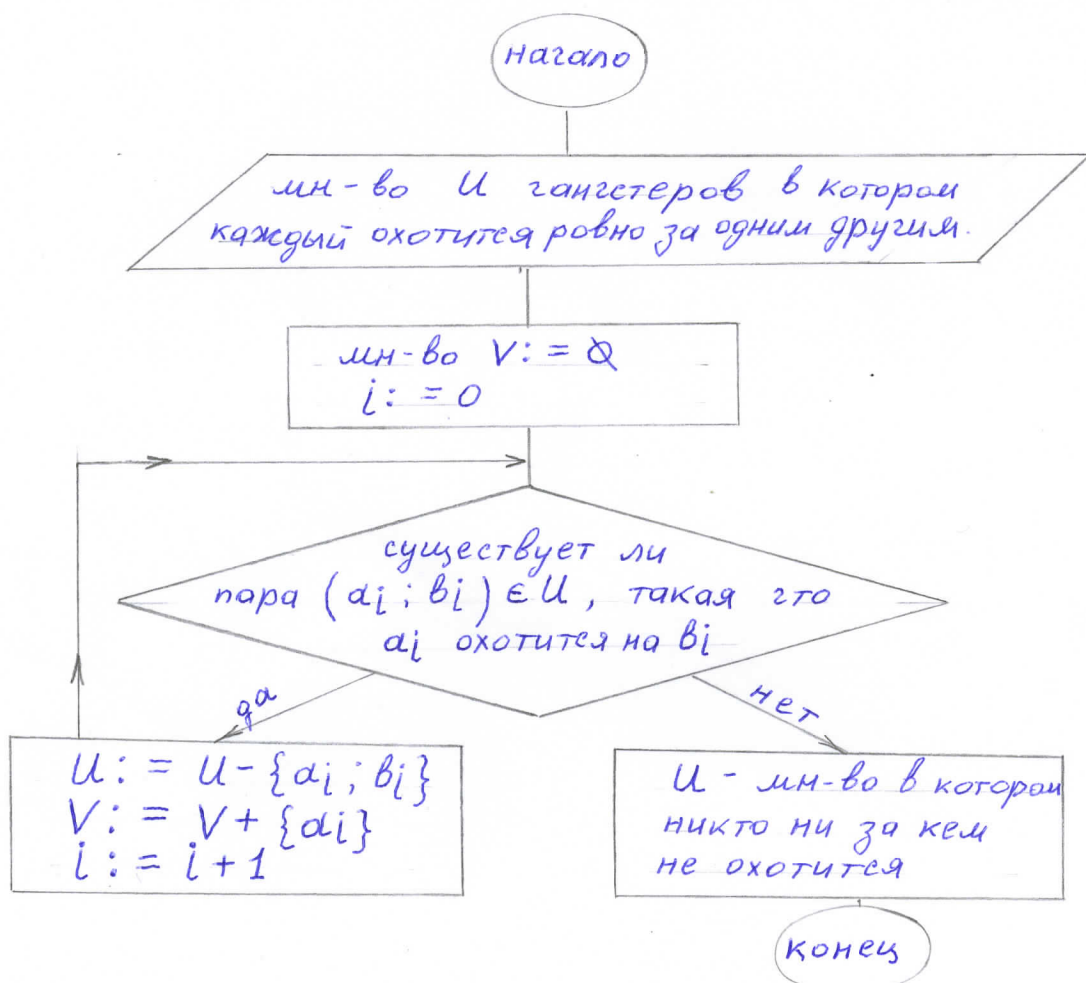 начало
мн-во U гангстеров в котором
каждый охотится ровно за одним другим.
мн-во V: = ∅
i: = 0
существует ли
пара (ai; bi) ∈ U, такая что
ai охотится на bi
да
нет
U: = U - {ai; bi}
V: = V + {ai}
i: = i + 1
U - мн-во в котором
никто ни за кем
не охотится
конец